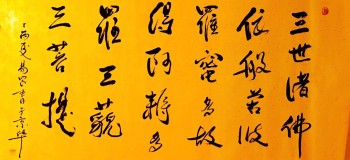 三世诸佛
依般若波
罗蜜多故
得阿耨多
罗三藐
三菩提